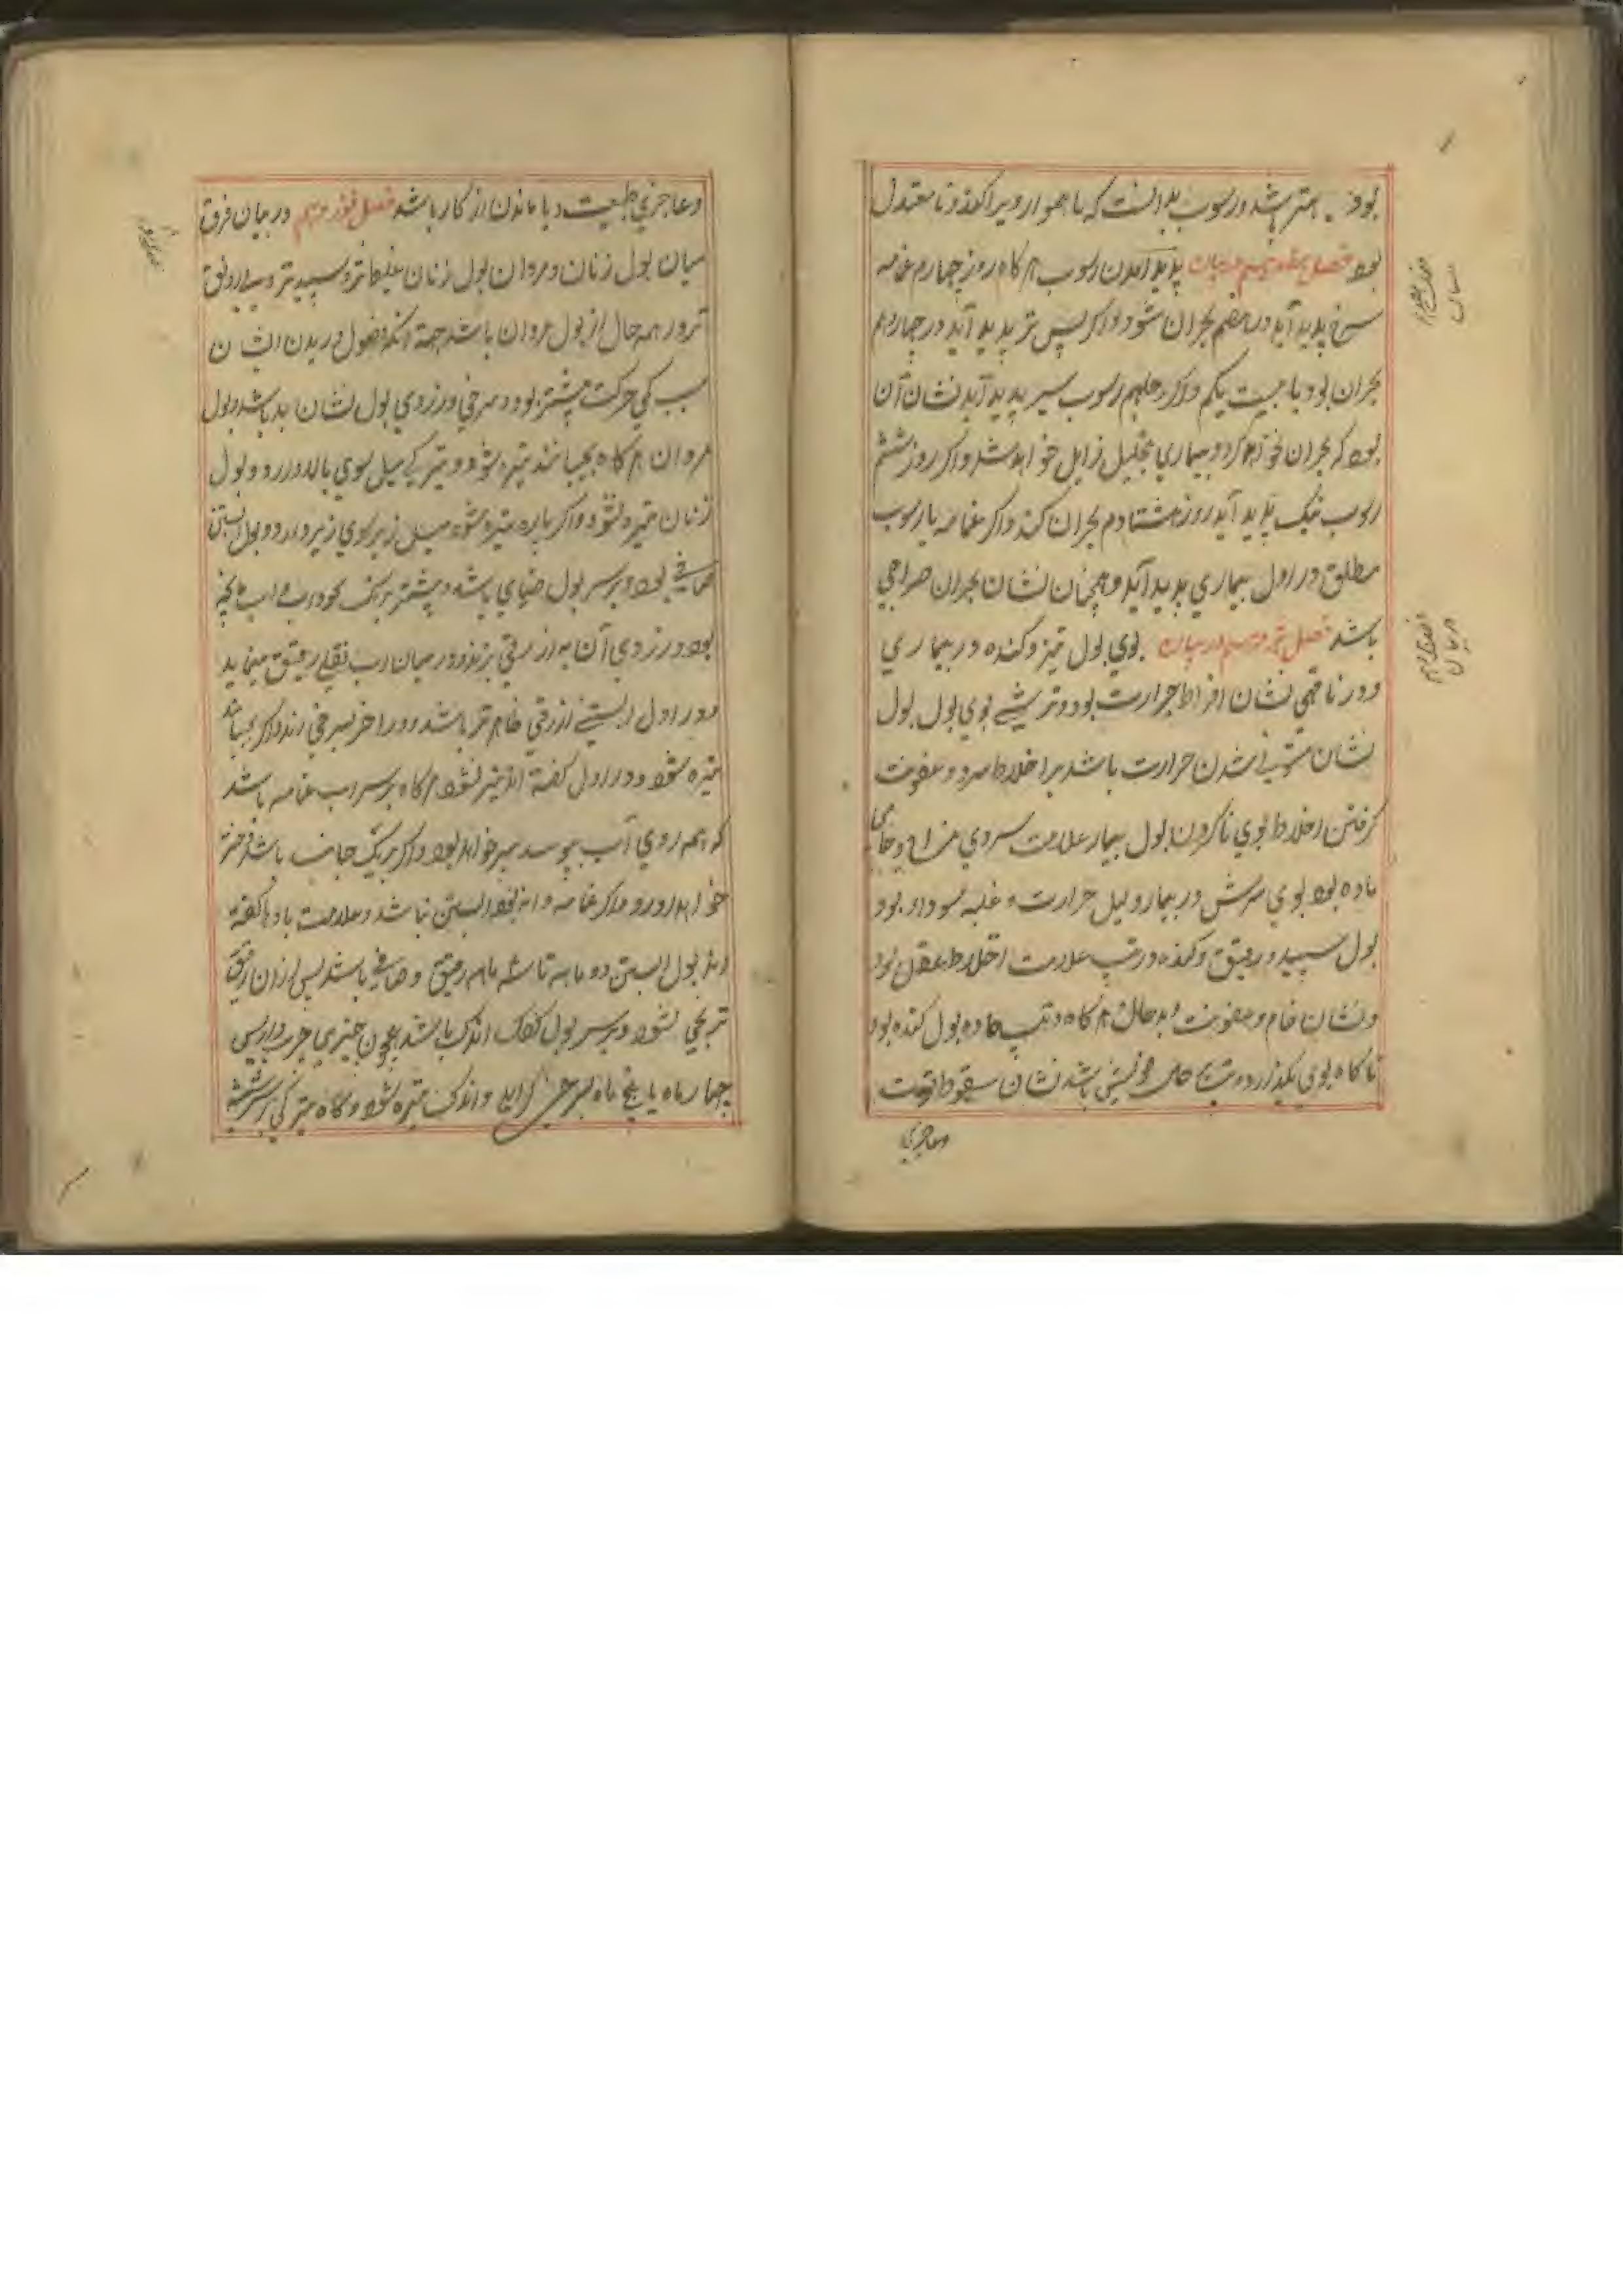 بود. بهتر باشد و رسوب بد آنست که ناهموار و پراکنده و نامعتدل
بود فصل هفدهم در بیان پدید آمدن رسوب هرگاه روز چهارم غمامه
سرخ پدید آید در هفتم بحران شود و اگر پس تر پدید آید در چهاردهم
بحران بود یا بیست یکم و اگر رسوب سپر پدید آید نشان آن
بود که بحران نخواهد کرد و بیماری بتحلیل زایل خواهد شد و اگر روز ششم
رسوب نیک پدید آید روز هشتادم بحران کند و اگر غمامه یا رسوب
مطلق در اول بیماری پدید آید و همچنان نشان بحران خراجی
باشد فصل هژدهم در بیان بوی بول تیز و کنده در بیماری
و در ناقهی نشان افراط حرارت بود و ترشی بوی بول بول
نشان مستولی شدن حرارت باشد بر اخلاط سرد و عفونت
گرفتن اخلاط بوی ناکردن بول بیمار علامت سردی مزاج و خامی
ماده بود بوی ترش در بیمار دلیل حرارت و غلبه سودا بود
بول سپید و رقیق و کنده در تب علامت اختلاط عقل بود
و نشان خام و عفونت و بدحال هرگاه در تب حاده بول کنده بود
ناکاه بوی بگذارد و تب بحال خویش باشد نشان سقوط قوت
وعاجزی
وعاجزی طبیعت و یا ماندن از کار باشد فصل نوزدهم در بیان فرق
میان بول زنان و مردان بول زنان غلیظ تر و سپیدتر و بی رونق
تر در همه حال از بول مردان باشد جهة آنکه فضول در بدن ایشان
بسبب کمی حرکت بیشتر بود و سرخی و زردی بول نشان بد باشد بول
مردان هرگاه بجنبانند تیره شود و تیرگی میل سوی بالا دارد و بول
زنان تیره نشود و اگر پاره تیره شود میل زیر سوی زیر دارد و بول آبستن
صافی بود و بر سر بول ضبابی باشد و بیشتر برنگ نخود آب و آب پاچه
بود و زردی آن به ازرقی زند و در میان آب ثقلی رقیق می نماید
و در اول آبستنی ازرقی ظاهرتر باشد و در اخر بسرخی زند و اگر بجنبانند
تیره شود و در اول گفته اند تیره نشود هرگاه بر سر آب غمامه باشد
که همه روی آب بپوسد پسر خواهد بود و اگر بر یک جانب باشد دختر
خواهد آورد و اگر غمامه و دانه نبود آبستن نباشد و علامت باد باکفته
اند بول آبستن دو ماهه تا سه ماهه رقیق و صافی باشد پس از آن رقیق
ترنجی شود و بر سر بول کفک اندک باشد همچون چیزی چرب و از پس
چهار ماه یا پنج ماه بسرخی گراید و اندک تیره شود و گاه تیرکی